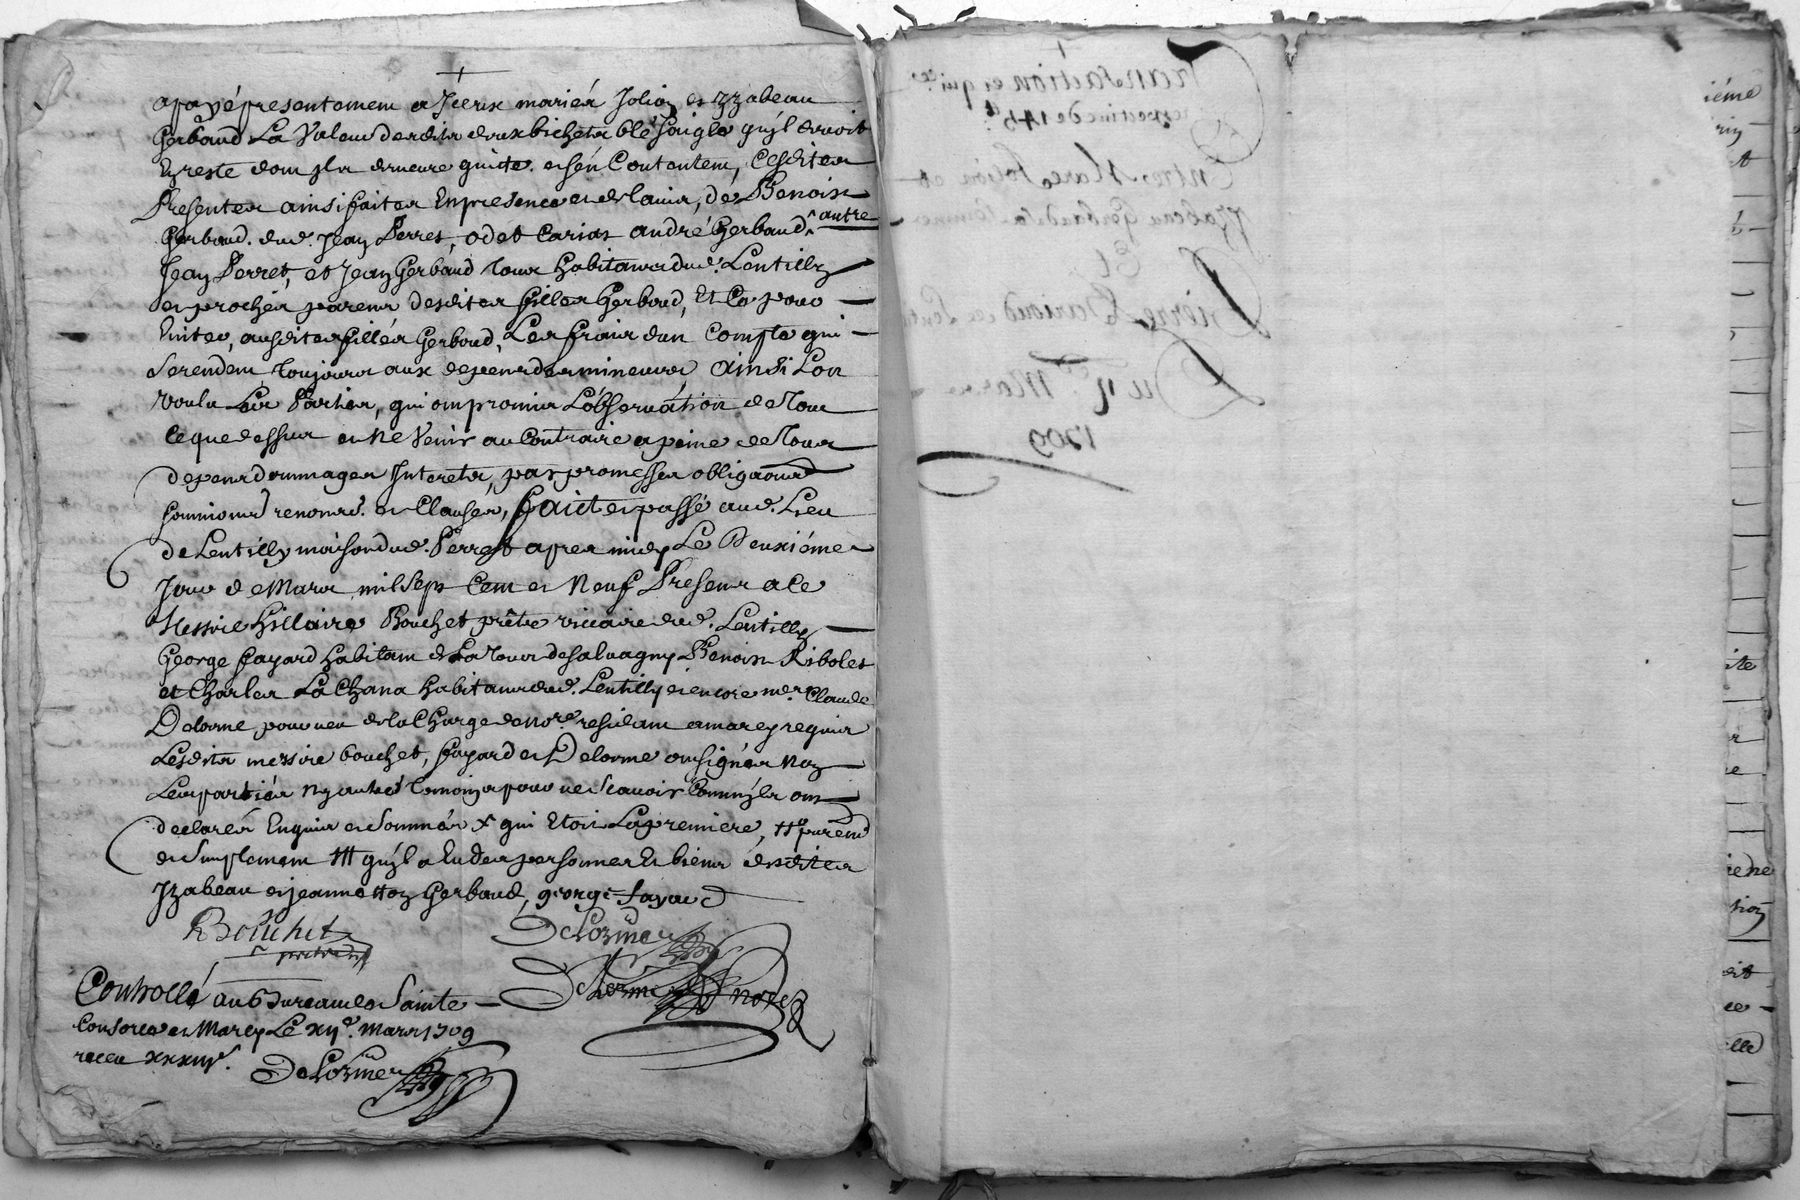 apayé presentement a Iceux mariéz Jolion et Izabeau
Gerbaud La Valeur desdits deux bichets blé Seigle quil devoit
de reste dont il demeure quitte. et sén Contentent, Cesdites
Presentes ainsi faites En presence et de lavis, dé Benoist
Gerbaud. dud. Jean Perret, odet Carias andré Gerbaud, autre
Jean Perret, et Jean Gerbaud tous habitans dud. Lentilly
et prochés parens desdites filles Gerbaud, Et Ce pour
Eviter, ausdites filles Gerbaud, Les frais dun Compte qui
Serendent toujours aux depens des mineurs, ainsi Lon
voulu Les Parties, qui ont promis Lobservation de tout
Ceque dessus et Ne Venir au Contraire a peine de tous
depens dommages Interets, par promesses obligaons
soumions renonc. et Clauses, faict et passé aud. Lieu
de Lentilly maison dud. Perret apres midy Le Deuxiéme
Jour de Mars mil Sept Cent et Neuf Presens a Ce
Messire hillaire Bouchet prêtre viccaire dud. Lentilly
George fayard habitant de La tour de salvagny Benoist Ribolet
et Charles La Chana habitans dud. Lentilly et encore me. Claude
Delorme pourveu de la Charge de nore. residant a marcy requis
Lesdits messire bouchet, fayard et Delorme ont signés Non
Les partiés Ny autres temoins pour ne Scavoir Comm ils ont
declarés Enquis et Sommés qui Etoit La premiere,
et Simplement quil a Eu des personnes Et biens desdites
Izabeau et jeannetton Gerbaud, george fayard
Bouchet
Delorme
Delorme nore
Controllé au Bureau de Sainte
Consorce et Marcy Le xije. Mars 1709
receu
Delorme
Transaction et quitce
Entre Marc Jolion et
Izabeau Gerbaud sa femme
Et
Pierre
Du 2e Mars
1709